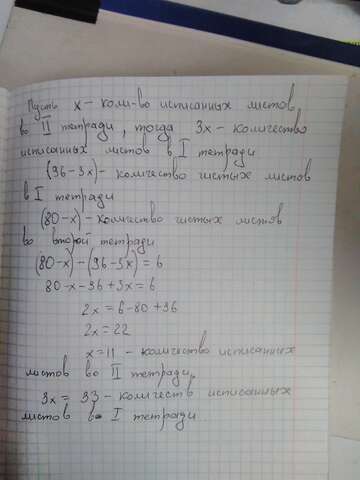 Пусть x - коли-во исписанных листов
во II тетради, тогда 3x - количество
исписанных листов в I тетради
(96-3x) - количество чистых листов
в I тетради
(80-x) - количество чистых листов
во второй тетради
(80-x)-(96-3x) = 6
80-x-96+3x = 6
2x = 6-80+96
2x = 22
x = 11 - количество исписанных
листов во II тетради,
3x = 33 - количеств исписанных
листов в I тетради